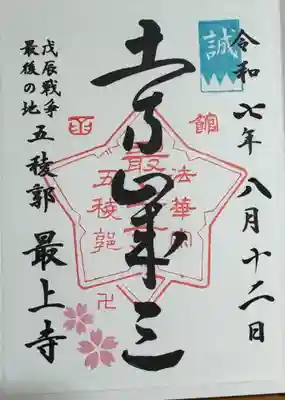 令和七年八月十二日
誠
土方歳三
函館
法華宗
五稜郭
卍
戊辰戦争
最後の地
五稜郭 最上寺